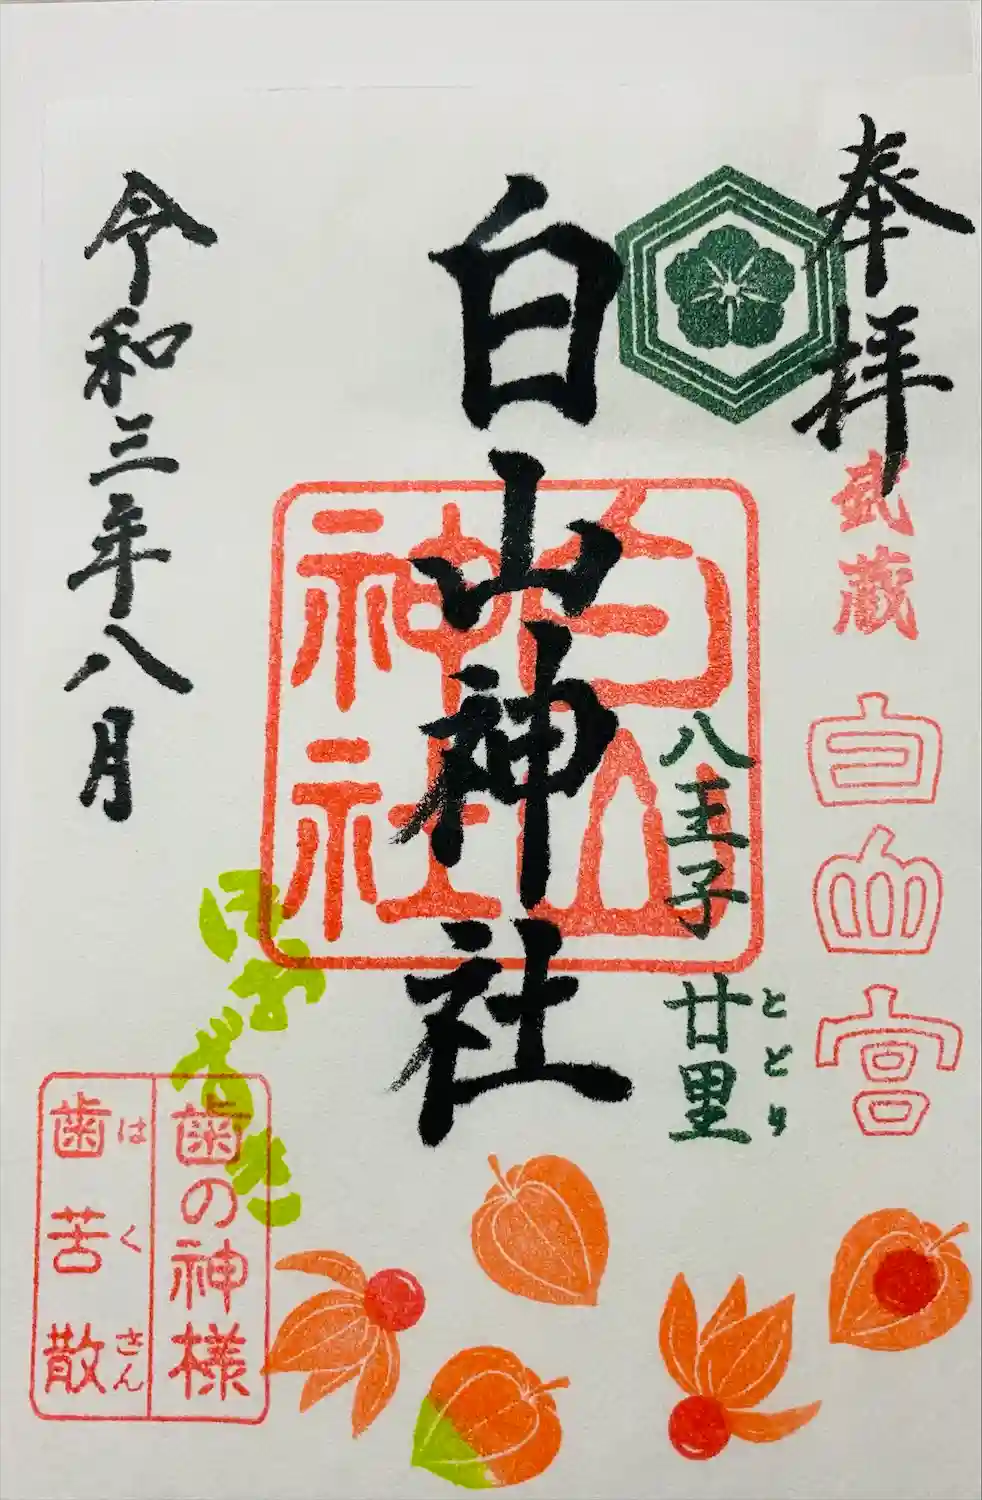 奉拝
武蔵
白山宮
八王子 廿里
ととり
白山神社
白山
神社
令和三年八月
歯の神様
歯苦散
はくさん